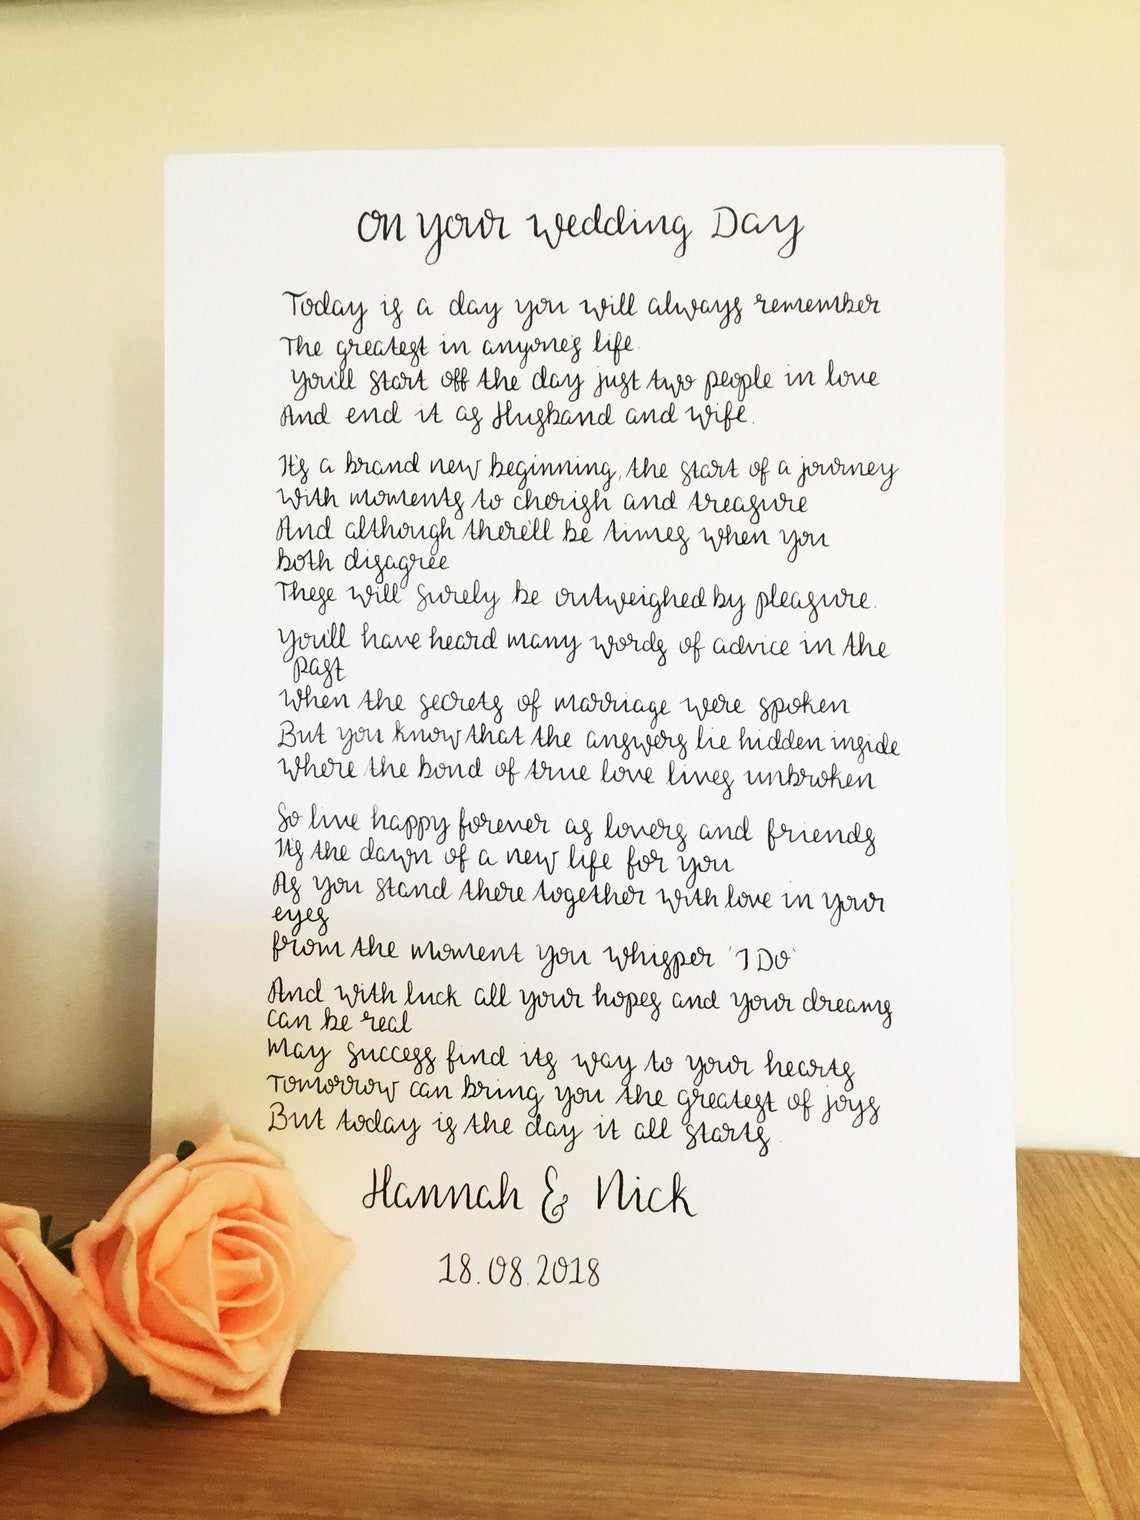 On Your Wedding Day
Today is a day you will always remember
The greatest in anyone's life.
You'll start off the day just two people in love
And end it as Husband and wife.
It's a brand new beginning, the start of a journey
With moments to cherish and treasure
And although there'll be times when you
both disagree
These will surely be outweighed by pleasure.
You'll have heard many words of advice in the
past
When the secrets of marriage were spoken
But you know that the answers lie hidden inside
Where the bond of true love lives unbroken
So live happy forever as lovers and friends
It's the dawn of a new life for you
As you stand there together with love in your
eyes
from the moment you whisper 'I DO'
And with luck all your hopes and your dreams
can be real
May success find its way to your hearts
Tomorrow can bring you the greatest of joys
But today is the day it all starts.
Hannah & Nick
18.08.2018